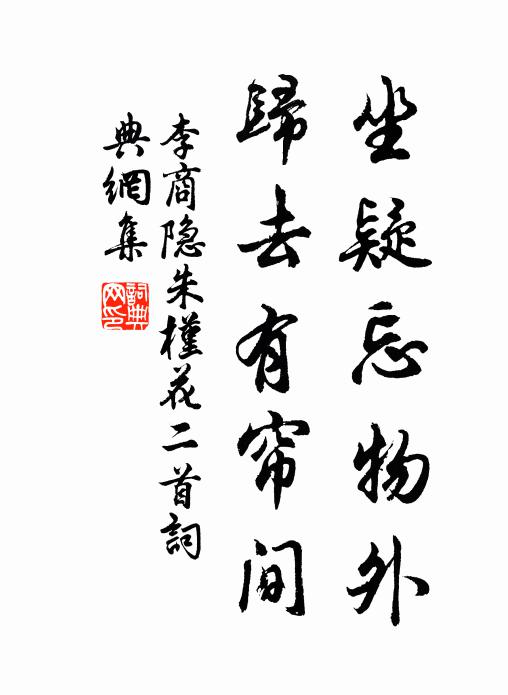 坐疑忘物外
歸去有帘间
李商隐朱槿花二首詞
典網集
詞典
网印